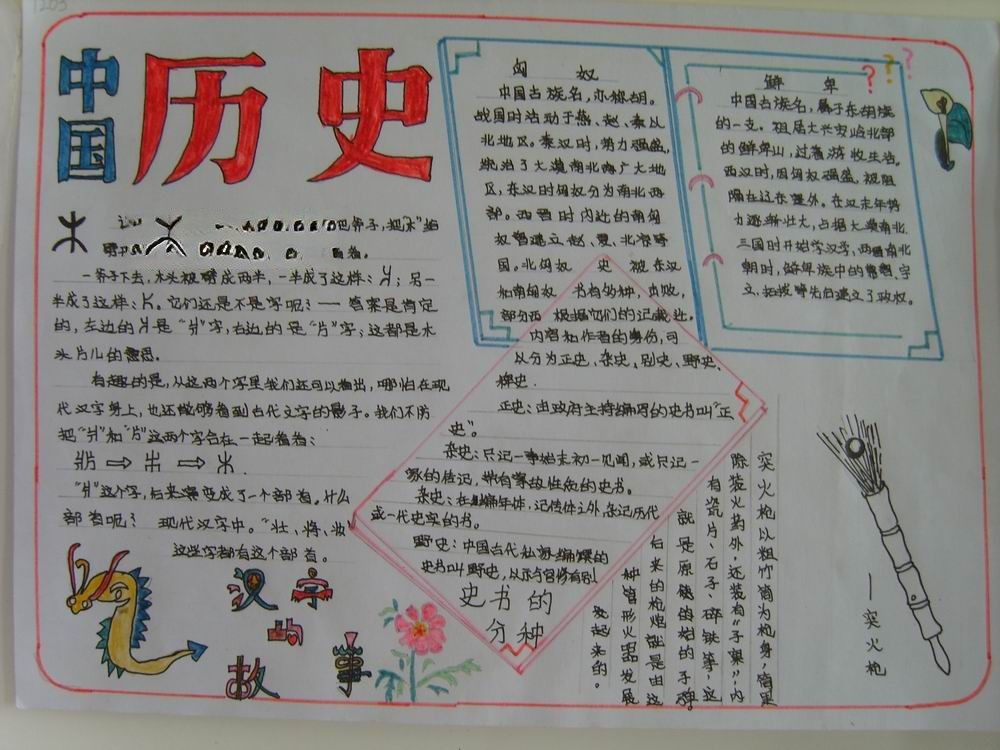 中国
历史
把斧子,把"木"给
一斧子下去,木头被劈成两半,一半成了这样:爿;另一
半成了这样:片。它们还是不是字呢?——答案是肯定
的,左边的爿是"爿"字,右边的是"片"字;这都是木
头片儿的意思。
有趣的是,从这两个字里我们还可以看出,哪怕在现
代汉字身上,也还能够看到古代文字的影子。我们不妨
把"爿"和"片"这两个字合在一起看看:
"爿"这个字,后来演变成了一个部首。什么
部首呢? 现代汉字中。"壮、将、妆
这些字都有这个部首。
汉字
与
故事
匈 奴
中国古族名,亦称胡。
战国时活动于燕、赵、秦以
北地区。秦汉时,势力强盛,
统治了大漠南北广大地
区,东汉时匈奴分为南北两
部。西晋时内迁的南匈
奴曾建立赵、夏、北凉等
国。北匈奴 被东汉
和南匈奴
部分西迁。
鲜 卑
中国古族名,属于东胡族
的一支。祖居大兴安岭北部
的鲜卑山,过着游牧生活。
西汉时,因匈奴强盛,被阻
隔在辽东塞外。在汉末年势
力逐渐壮大,占据大漠南北,
三国时开始学汉字,两晋南北
朝时,鲜卑族中的慕容、宇
文、拓拔等先后建立了政权。
史
书有多种,
根据它们的记载
内容和作者的身份,可
以分为正史、杂史、别史、野史、
稗史.
正史:由政府主持编写的史书叫"正
史"。
杂史:只记一事始末初一见闻,或只记一
家的传记,带有掌故性质的史书。
杂史:在编年体,记传体之外,杂记历代
或一代史实的书。
野史:中国古代私家编撰的
史书叫野史,从示与官修有别
史书的
分种
突火枪以粗竹筒为枪身,筒里
除装火药外,还装有"子窠",内
有瓷片、石子、碎铁等,这
就是原始的子弹。
后来的枪炮就是由这
种管形火器发展
发起来的。
——突火枪